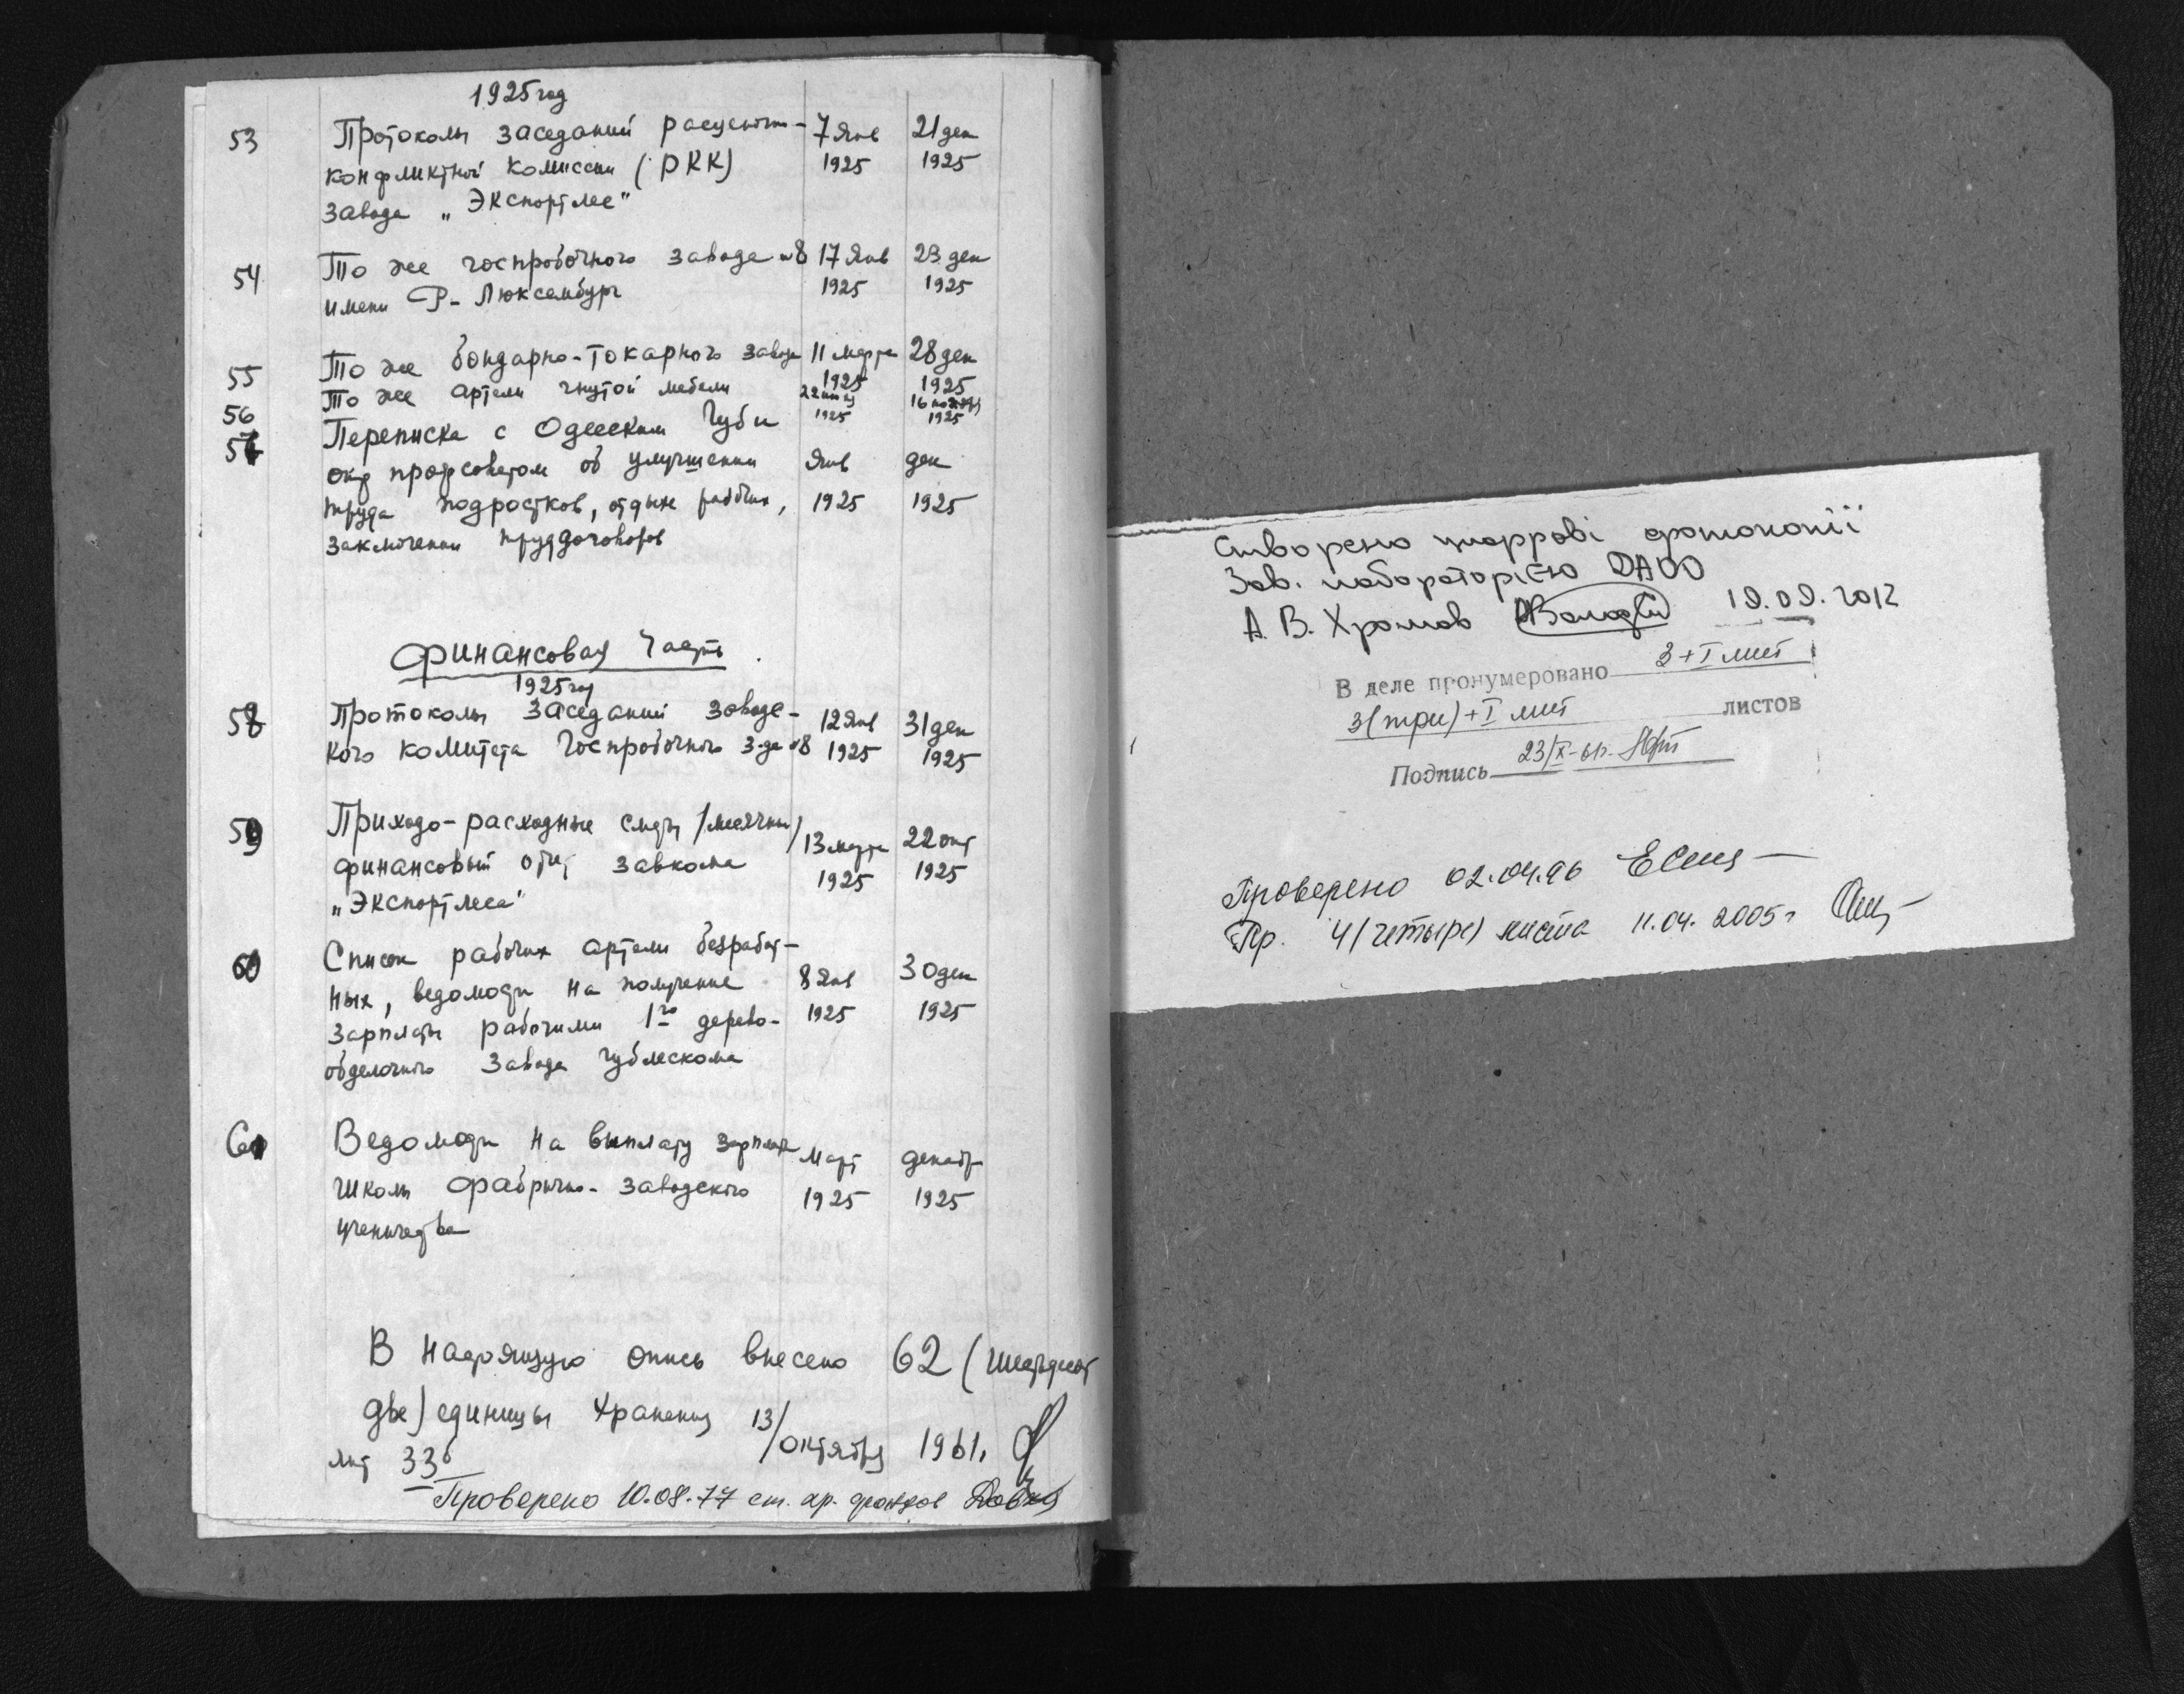 1925 год
53 Протоколы заседаний расценочно- 7 Янв 21 дек
конфликтной комиссии (РКК) 1925 1925
завода „Экспортлес"
54 То же госпробочного завода №8 17 Янв 23 дек
имени Р. Люксембург 1925 1925
55 То же бондарно-токарного завода 11 марта 28 дек
1925 1925
56 То же артели гнутой мебели 22 16 ноября
1925 1925
57 Переписка с Одесским Губ и
окр профсоветом об улучшении Янв дек
труда подростков, отдыхе рабочих, 1925 1925
заключении труддоговоров
Финансовая часть
1925 год
58 Протоколы заседаний заводс- 12 Янв 31 дек
кого комитета Госпробочного з-да №8 1925 1925
59 Приходо-расходные сметы /месячный/ 13 марта 22 окт
финансовый отчет завкома 1925 1925
„Экспортлеса"
60 Список рабочих артели безработ-
ных, ведомости на получение 8 Янв 30 дек
зарплаты рабочими 1го дерево- 1925 1925
обделочного завода Гублескома
61 Ведомости на выплату зарплаты март декабрь
школы фабрично-заводского 1925 1925
ученичества
В настоящую опись внесено 62 (шестьдесят
две) единицы хранения 13/октября 1961.
лит 33б
Проверено 10.08.77 ст. хр. фондов
Створено цифрові фотокопії
Зав. лабораторією ДАОО
А. В. Хромов 19.09.2012
В деле пронумеровано 3+I лист
3(три)+I лист листов
Подпись 23/X-61г.
Проверено 02.04.96
Пр. 4 (четыре) листа 11.04.2005 г